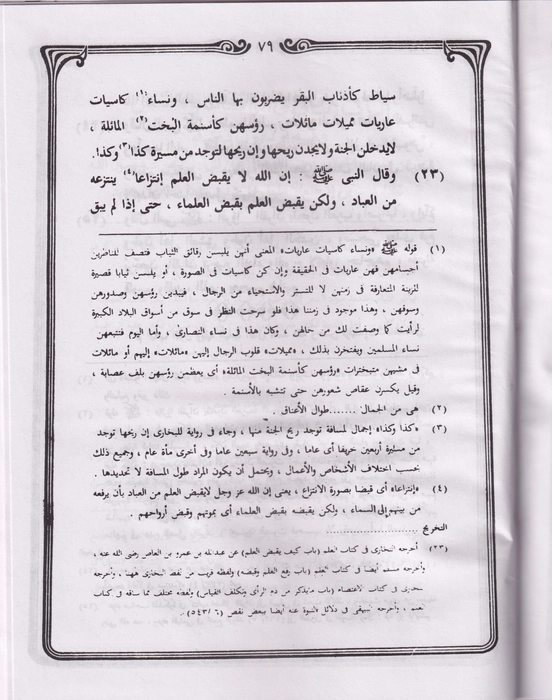 ٧٩
سياط كأذناب البقر يضربون بها الناس ، ونساء(١) كاسيات
عاريات مميلات مائلات ، رؤسهن كأسنمة البُخت(٢) المائلة ،
لايدخلن الجنة ولايجدن ريحها وإن ريحها لتوجد من مسيرة كذا(٣) وكذا.
(٢٣) وقال النبى ﷺ : إن الله لا يقبض العلم إنتزاعا(٤) ينتزعه
من العباد ، ولكن يقبض العلم بقبض العلماء ، حتى إذا لم يبق
(١) قوله ﷺ «ونساء كاسيات عاريات» المعنى أنهن يلبسن رقائق الثياب فتصف للناظرين
أجسامهن فهن عاريات فى الحقيقة وإن كن كاسيات فى الصورة ، أو يلسن ثيابا قصيرة
للزينة المتعارفة فى زمنهن لا للتستر والاستحياء من الرجال ، فيبدين رؤسهن وصدورهن
وسوقهن ، وهذا موجود فى زمننا هذا فلو سرحت النظر فى سوق من أسواق البلاد الكبيرة
لرأيت كما وصفت لك من حالهن ، وكان هذا فى نساء النصارى ، وأما اليوم فتتبعهن
نساء المسلمين ويفتخرن بذلك ، «مميلات» قلوب الرجال إليهن «مائلات» إليهم أو مائلات
فى مشيهن متبخترات «رؤسهن كأسنمة البخت المائلة» أى يعظمن رؤسهن بلف عصابة ،
وقيل يكسرن عقاص شعورهن حتى تتشبه بالأسنمة .
(٢) هى من الجمال ....... طوال الأعناق .
(٣) «كذا وكذا» إجمال لمسافة توجد ريح الجنة منها ، وجاء فى رواية للبخارى إن ريحها توجد
من مسيرة أربعين خريفا أى عاما ، وفى رواية سبعين عاما وفى أخرى مأة عام ، وجميع ذلك
حسب اختلاف الأشخاص والأعمال ، ويحتمل أن يكون المراد طول المسافة لا تحديدها .
(٤) «إنتزاعا» أى قبضا بصورة الانتزاع ، يعنى إن الله عز وجل لايقبض العلم من العباد بأن يرفعه
من بينهم إلى السماء ، ولكن يقبضه بقبض العلماء أى بموتهم وقبض أرواحهم .
التخريج ............................
(٢٣) أخرجه البخارى فى كتاب العلم (باب كيف يقبض العلم) عن عبدالله بن عمرو بن العاص رضى الله عنه ،
وأخرجه مسلم أيضا فى كتاب العلم (باب رفع العلم وقبضه) ولفظه قريب من لفظ البخارى ههنا ، وأخرجه
البخارى فى كتاب الاعتصام (باب مايذكر من ذم الرأى وتكلف القياس) ولفظه مختلف مما ساقه فى كتاب
العلم ، وأخرجه البيهقى فى دلائل النبوة عنه أيضا ببعض نقص (٥٤٣/٦) .